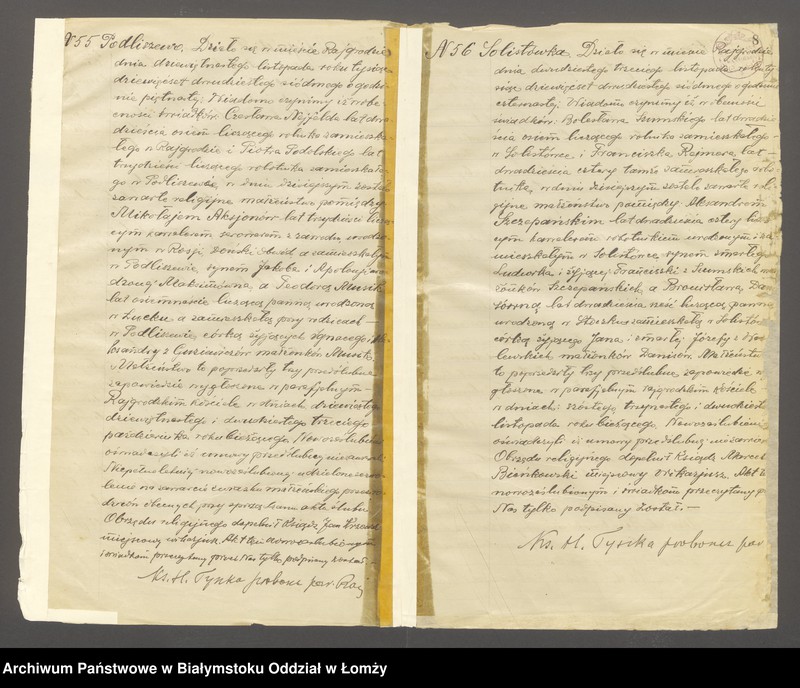 N 55 Podliszewo. Działo się w mieście Rajgrodzie
dnia dziewiętnastego listopada roku tysiąc
dziewięćset dwudziestego siódmego o godzi-
nie piętnastej. Wiadomo czynimy iż w obe-
cności świadków Czesława lat dwa-
dzieścia osiem liczącego rolnika zamieszka-
łego w Rajgrodzie i Piotra Podolskiego lat
trzydzieści liczącego robotnika zamieszkałe-
go w Podliszewie, w dniu dzisiejszym zostało
zawarte religijne małżeństwo pomiędzy
Mikołajem Aksjonów lat trzydzieści liczą-
cym kawalerem z zawodu urodzo-
nym w Rosji a zamieszkałym
w Podliszewie, synem Jakóba i Apolonji uro-
dzonej a Teodorą
lat osiemnaście liczącą panną urodzoną
w Łucku a zamieszkałą przy rodzicach
w Podliszewie, córką żyjących Ignacego i
małżonków
Małżeństwo to poprzedziły trzy przedślubne
zapowiedzie wygłoszone w parafjalnym
Rajgrodzkim Kościele w dniach dziewiątego
dziewiętnastego i dwudziestego trzeciego
października roku bieżącego. Nowozaślubieni
oświadczyli iż umowy przedślubnej nie zawarli.
Niepełnoletniej nowozaślubionej udzielone zezwo-
lenie na zawarcie związku małżeńskiego przez ro-
dziców obecnych przy spisywaniu aktu ślubu.
Obrzędu religijnego dopełnił Ksiądz Jan
miejscowy wikarjusz. Akt ten nowozaślubionym
i świadkom przeczytany przez Nas tylko podpisany został.
Ks. H. Tyszka proboszcz par. Raj
N 56 Solistówka. Działo się w mieście Rajgrodzie
dnia dwudziestego trzeciego listopada roku ty-
siąc dziewięćset dwudziestego siódmego o godzinie
czternastej. Wiadomo czynimy iż w obecności
świadków: Bolesława Szumskiego lat dwadzie-
ścia osiem liczącego rolnika zamieszkałego
w Solistówce i Franciszka Rejmera lat
dwadzieścia cztery tamże zamieszkałego rol-
nika, w dniu dzisiejszym zostało zawarte reli-
gijne małżeństwo pomiędzy: Aleksandrem
Szczepańskim lat dwadzieścia cztery liczą-
cym kawalerem robotnikiem urodzonym i za-
mieszkałym w Solistówce, synem zmarłego
Ludwika i żyjącej Franciszki z Szumskich mał-
żonków Szczepańskich, a Bronisławą
lat dwadzieścia sześć liczącą panną
urodzoną w zamieszkałą w Solistówce
córką żyjącego Jana i zmarłej Józefy z
małżonków Małżeństwo
to poprzedziły trzy przedślubne zapowiedzie wy-
głoszone w parafjalnym rajgrodzkim Kościele
w dniach: szóstego, trzynastego i dwudziestego
listopada roku bieżącego. Nowozaślubieni
oświadczyli iż umowy przedślubnej nie zawarli.
Obrzędu religijnego dopełnił Ksiądz
Bieńkowski miejscowy Wikarjusz. Akt ten
nowozaślubionym i świadkom przeczytany przez
Nas tylko podpisany został.
Ks. H. Tyszka proboszcz par
8
Archiwum Państwowe w Białymstoku Oddział w Łomży